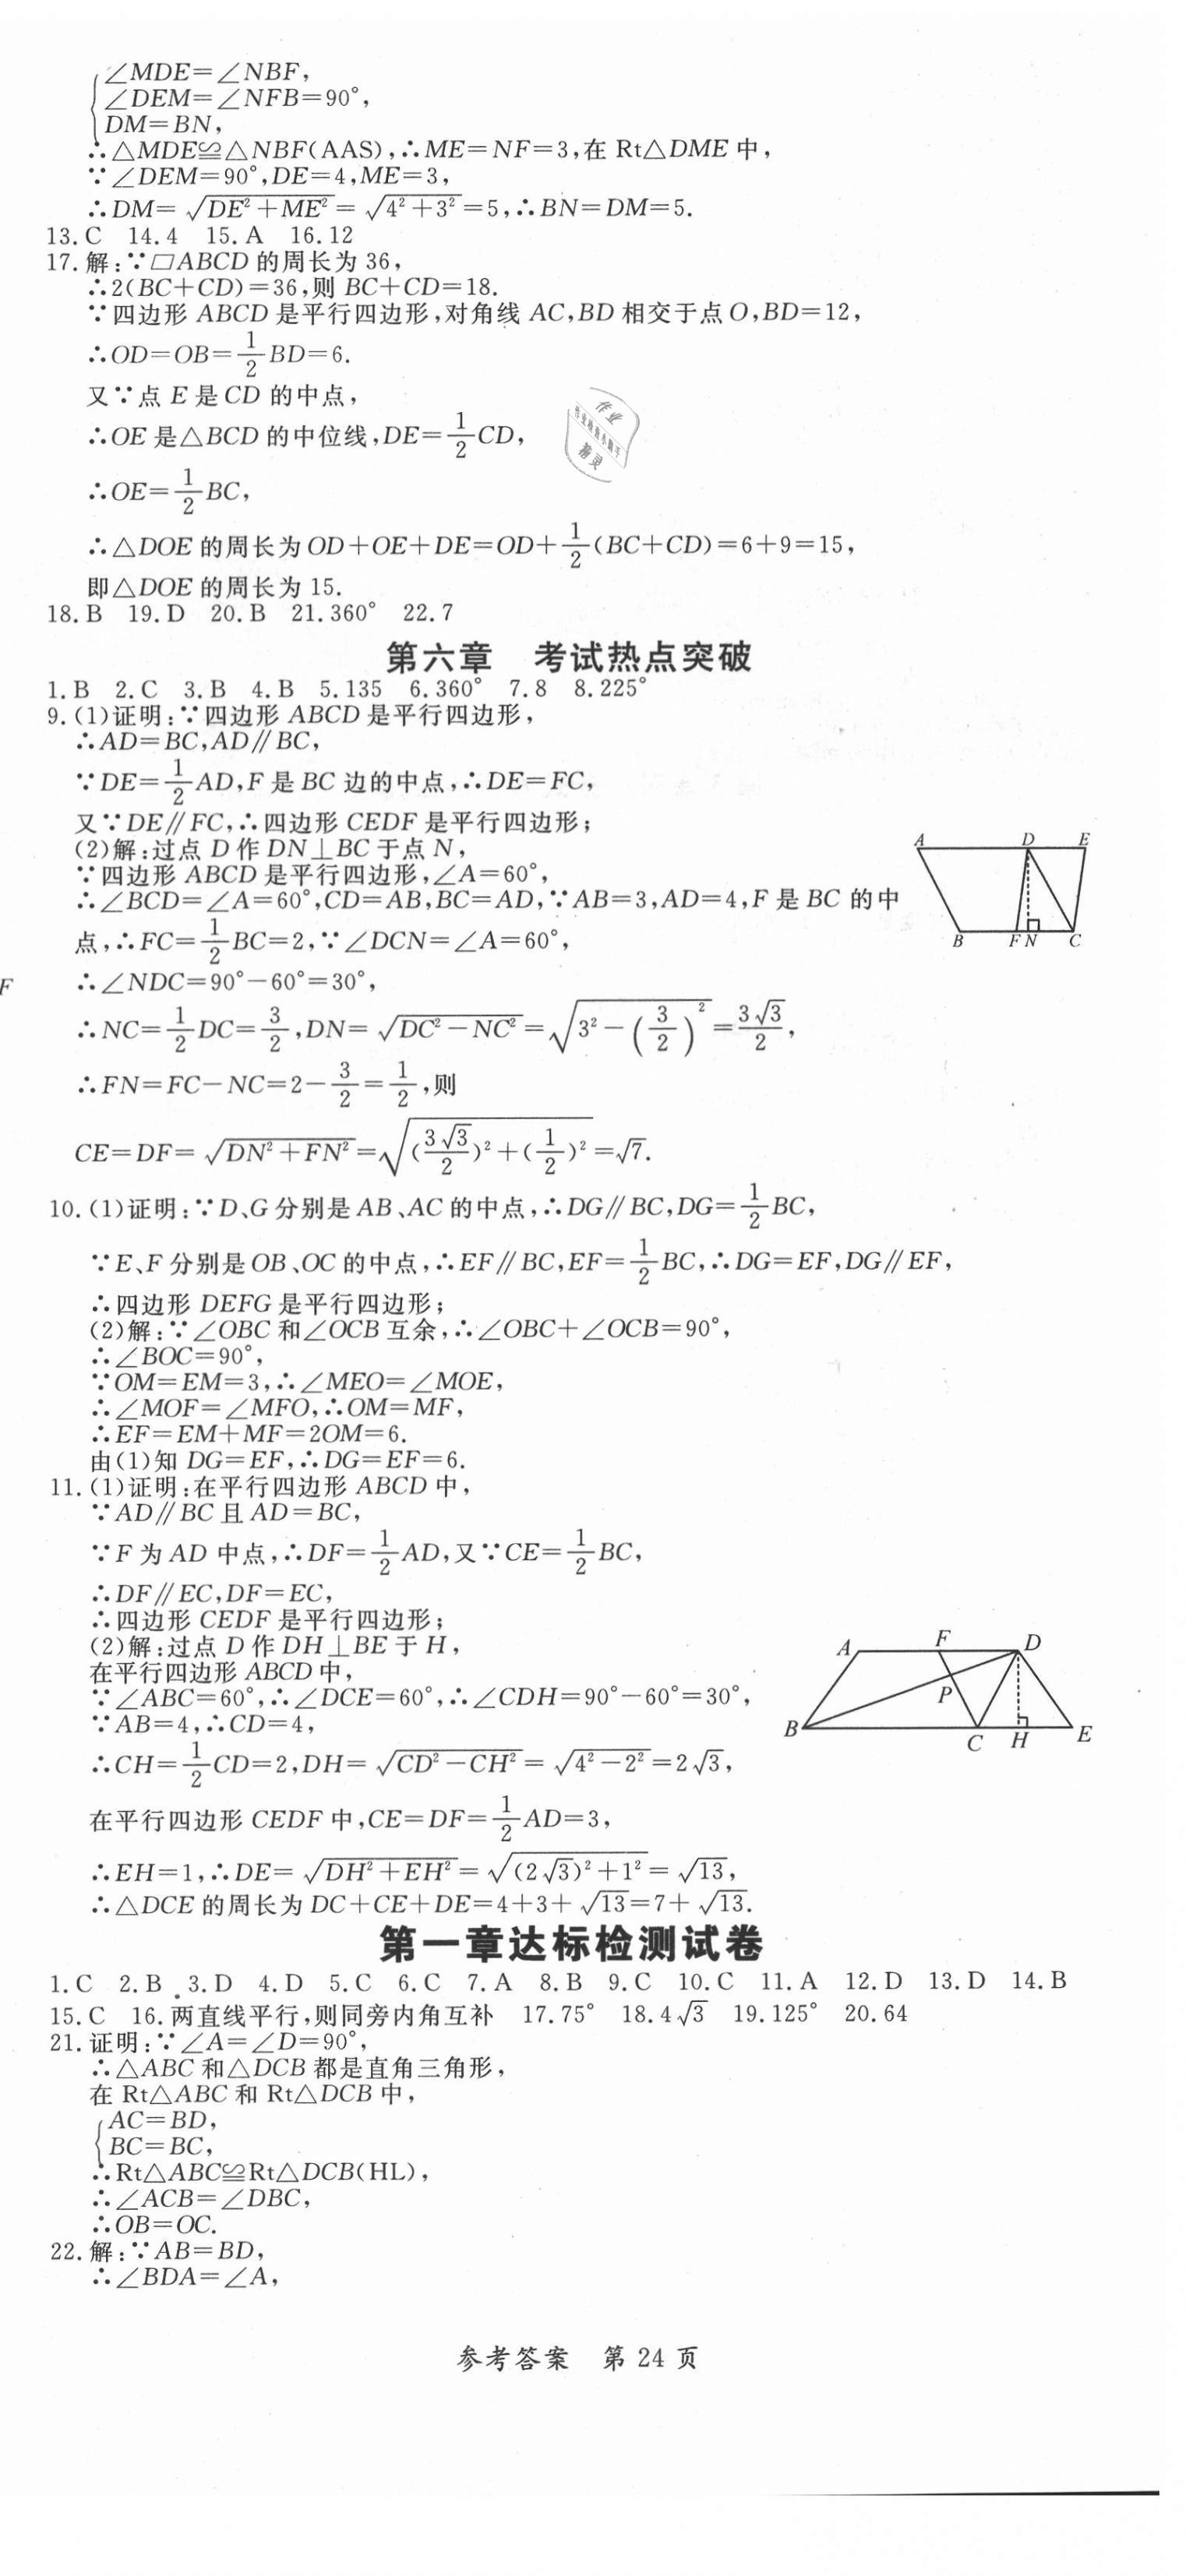 ∠MDE=∠NBF,
∠DEM=∠NFB=90°,
DM=BN,
∴△MDE≌△NBF(AAS),∴ME=NF=3,在 Rt△DME 中,
∵∠DEM=90°,DE=4,ME=3,
∴DM=√(DE²+ME²)=√(4²+3²)=5,∴BN=DM=5.
13.C 14.4 15.A 16.12
17.解:∵▱ABCD 的周长为 36,
∴2(BC+CD)=36,则 BC+CD=18.
∵四边形 ABCD 是平行四边形,对角线 AC,BD 相交于点 O,BD=12,
∴OD=OB=1/2BD=6.
又∵点 E 是 CD 的中点,
∴OE 是△BCD 的中位线,DE=1/2CD,
∴OE=1/2BC,
∴△DOE 的周长为 OD+OE+DE=OD+1/2(BC+CD)=6+9=15,
即△DOE 的周长为 15.
18.B 19.D 20.B 21.360° 22.7
作业
精灵
第六章 考试热点突破
1.B 2.C 3.B 4.B 5.135 6.360° 7.8 8.225°
9.(1)证明:∵四边形 ABCD 是平行四边形,
∴AD=BC,AD∥BC,
∵DE=1/2AD,F 是 BC 边的中点,∴DE=FC,
又∵DE∥FC,∴四边形 CEDF 是平行四边形;
(2)解:过点 D 作 DN⊥BC 于点 N,
∵四边形 ABCD 是平行四边形,∠A=60°,
∴∠BCD=∠A=60°,CD=AB,BC=AD,∵AB=3,AD=4,F 是 BC 的中
点,∴FC=1/2BC=2,∵∠DCN=∠A=60°,
A D E
B F N C
F
∴∠NDC=90°-60°=30°,
∴NC=1/2DC=3/2,DN=√(DC²-NC²)=√(3²-(3/2)²)=3√3/2,
∴FN=FC-NC=2-3/2=1/2,则
CE=DF=√(DN²+FN²)=√((3√3/2)²+(1/2)²)=√7.
10.(1)证明:∵D、G 分别是 AB、AC 的中点,∴DG∥BC,DG=1/2BC,
∵E、F 分别是 OB、OC 的中点,∴EF∥BC,EF=1/2BC,∴DG=EF,DG∥EF,
∴四边形 DEFG 是平行四边形;
(2)解:∵∠OBC 和∠OCB 互余,∴∠OBC+∠OCB=90°,
∴∠BOC=90°,
∵OM=EM=3,∴∠MEO=∠MOE,
∴∠MOF=∠MFO,∴OM=MF,
∴EF=EM+MF=2OM=6.
由(1)知 DG=EF,∴DG=EF=6.
11.(1)证明:在平行四边形 ABCD 中,
∵AD∥BC 且 AD=BC,
∵F 为 AD 中点,∴DF=1/2AD,又∵CE=1/2BC,
∴DF∥EC,DF=EC,
∴四边形 CEDF 是平行四边形;
(2)解:过点 D 作 DH⊥BE 于 H,
在平行四边形 ABCD 中,
∵∠ABC=60°,∴∠DCE=60°,∴∠CDH=90°-60°=30°,
∵AB=4,∴CD=4,
∴CH=1/2CD=2,DH=√(CD²-CH²)=√(4²-2²)=2√3,
A F D
P
B C H E
在平行四边形 CEDF 中,CE=DF=1/2AD=3,
∴EH=1,∴DE=√(DH²+EH²)=√((2√3)²+1²)=√13,
∴△DCE 的周长为 DC+CE+DE=4+3+√13=7+√13.
第一章达标检测试卷
1.C 2.B 3.D 4.D 5.C 6.C 7.A 8.B 9.C 10.C 11.A 12.D 13.D 14.B
15.C 16.两直线平行,则同旁内角互补 17.75° 18.4√3 19.125° 20.64
21.证明:∵∠A=∠D=90°,
∴△ABC 和△DCB 都是直角三角形,
在 Rt△ABC 和 Rt△DCB 中,
AC=BD,
BC=BC,
∴Rt△ABC≌Rt△DCB(HL),
∴∠ACB=∠DBC,
∴OB=OC.
22.解:∵AB=BD,
∴∠BDA=∠A,
参考答案 第 24 页